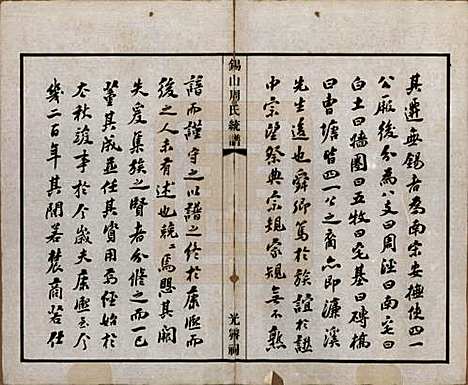 其遷無錫者為南宋安撫使四一
公厥後分為八支曰周涇曰南宅曰
白土曰墻圍曰五牧曰宅基曰磚橋
曰曹塘皆四一公之裔亦即濂溪
先生遠也舜卿篤於族誼於譜
中宗塋祭典宗規家規無不熟
錫山周氏統譜
光霽祠
諳而謹守之以譜之終於康熙而
後之人未有述也兢兢焉懼其闕
失爰集族之賢者分修之而一己
董其成並任其費用焉經始於
去秋竣事於今歲夫康熙至今
幾二百年其間若農商若仕